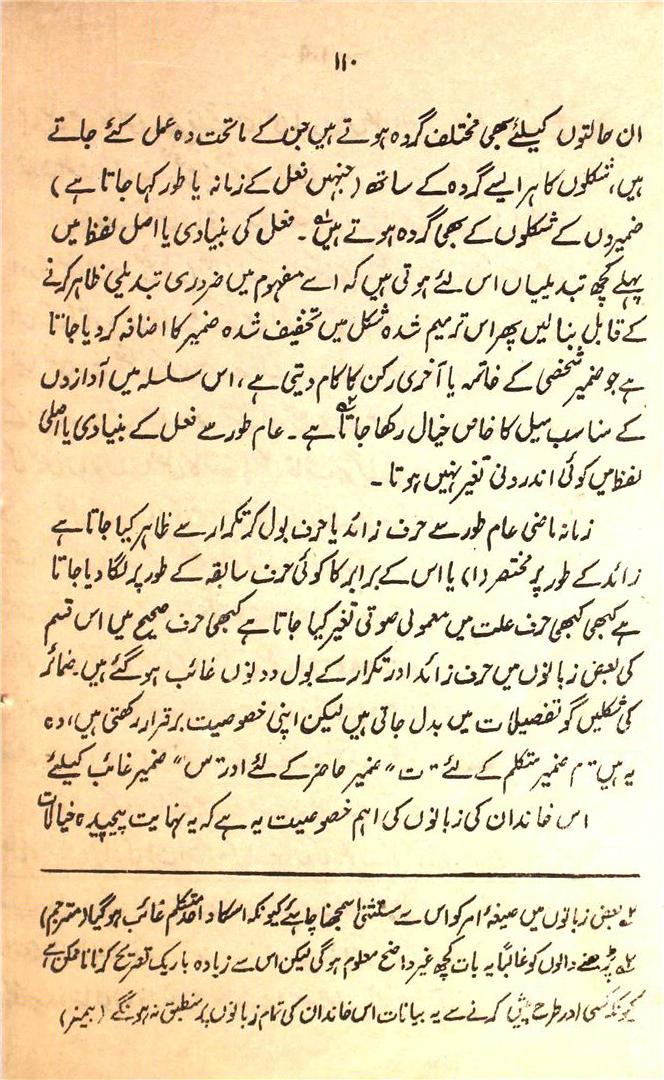 ۱۱۰
ان حالتوں کیلئے بھی مختلف گردہ ہوتے ہیں جن کے ماتحت دہ عمل کئے جاتے
ہیں، شکلوں کا ہر ایسے گردہ کے ساتھ (جنہیں فعل کے زمانہ یا طور کہا جاتا ہے)
ضمیروں کے شکلوں کے بھی گردہ ہوتے ہیں۱؎۔ فعل کی بنیادی یا اصل لفظ میں
پہلے کچھ تبدیلیاں اس لئے ہوتی ہیں کہ اسے مفہوم میں ضروری تبدیلی ظاہر کرنے
کے قابل بنائیں پھر اس ترمیم شدہ شکل میں تخفیف شدہ ضمیر کا اضافہ کر دیا جاتا
ہے جو ضمیر شخصی کے خاتمہ یا آخری رکن کا کام دیتی ہے، اس سلسلہ میں آدازوں
کے مناسب میل کا خاص خیال رکھا جاتا۲؎ ہے۔ عام طور سے فعل کے بنیادی یا اصلی
لفظ میں کوئی اندرونی تغیر نہیں ہوتا۔
زمانہ ماضی عام طور سے حرف زائد یا حرف بول کر تکرار سے ظاہر کیا جاتا ہے
زائد کے طور پر مختصر (ا) یا اس کے برابر کا کوئی حرف سابقہ کے طور پر لگا دیا جاتا
ہے کبھی کبھی حرف علت میں معمولی صوتی تغیر کیا جاتا ہے کبھی حرف صحیح میں اس قسم
کی بعض زبانوں میں حرف زائد ادر تکرار کے بول ددنوں غائب ہو گئے ہیں۔ ضمائر
کی شکلیں گو تفصیلات میں بدل جاتی ہیں لیکن اپنی خصوصیت برقرار رکھتی ہیں، دہ
یہ ہیں "م" ضمیر متکلم کے لئے "ت" ضمیر حاضر کے لئے ادر "س" ضمیر غائب کیلئے
اس خاندان کی زبانوں کی اہم خصوصیت یہ ہے کہ یہ نہایت پیچیدہ خیالات
۱؎ بعض زبانوں میں صیغۂ امر کو اس سے مستثنیٰ سمجھنا چاہئے کیونکہ اسکا واحد متکلم غائب ہو گیا (مترجم)
۲؎ پڑھنے دالوں کو غالباً یہ بات کچھ غیر داضح معلوم ہوگی لیکن اس سے زیادہ باریک تصریح کرنا ناممکن ہے
کیونکہ کسی ادر طرح پیش کرنے سے یہ بیانات اس خاندان کی تمام زبانوں پر منطبق نہ ہونگے (بیمز)